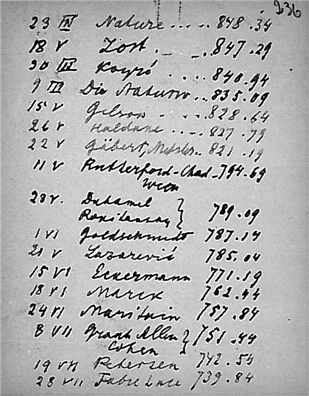 236
23 IV Nature .... 848.34
18 V Zost. .847.29
30 III Koyré .... 840.94
9 III Die Naturw... 835.09
15 V Gelson .... 828.64
26 V Haldane .... 827.79
22 V Gibert, Metsler.. 821.19
11 V Rutterford-Chad- 794.69
wien
28 V. Duhamel
Roustausay } 789.09
1 VI Goldschmidt 787.14
21 V. Lazarević 785.04
15 VI Eckermann 771.19
18 VI Marck 762.44
24 VI Maritain 757.84
8 VII Grant Allen
Cohen } 751.44
19 VII Petersen 742.54
28 VII Fabre Luce 739.84